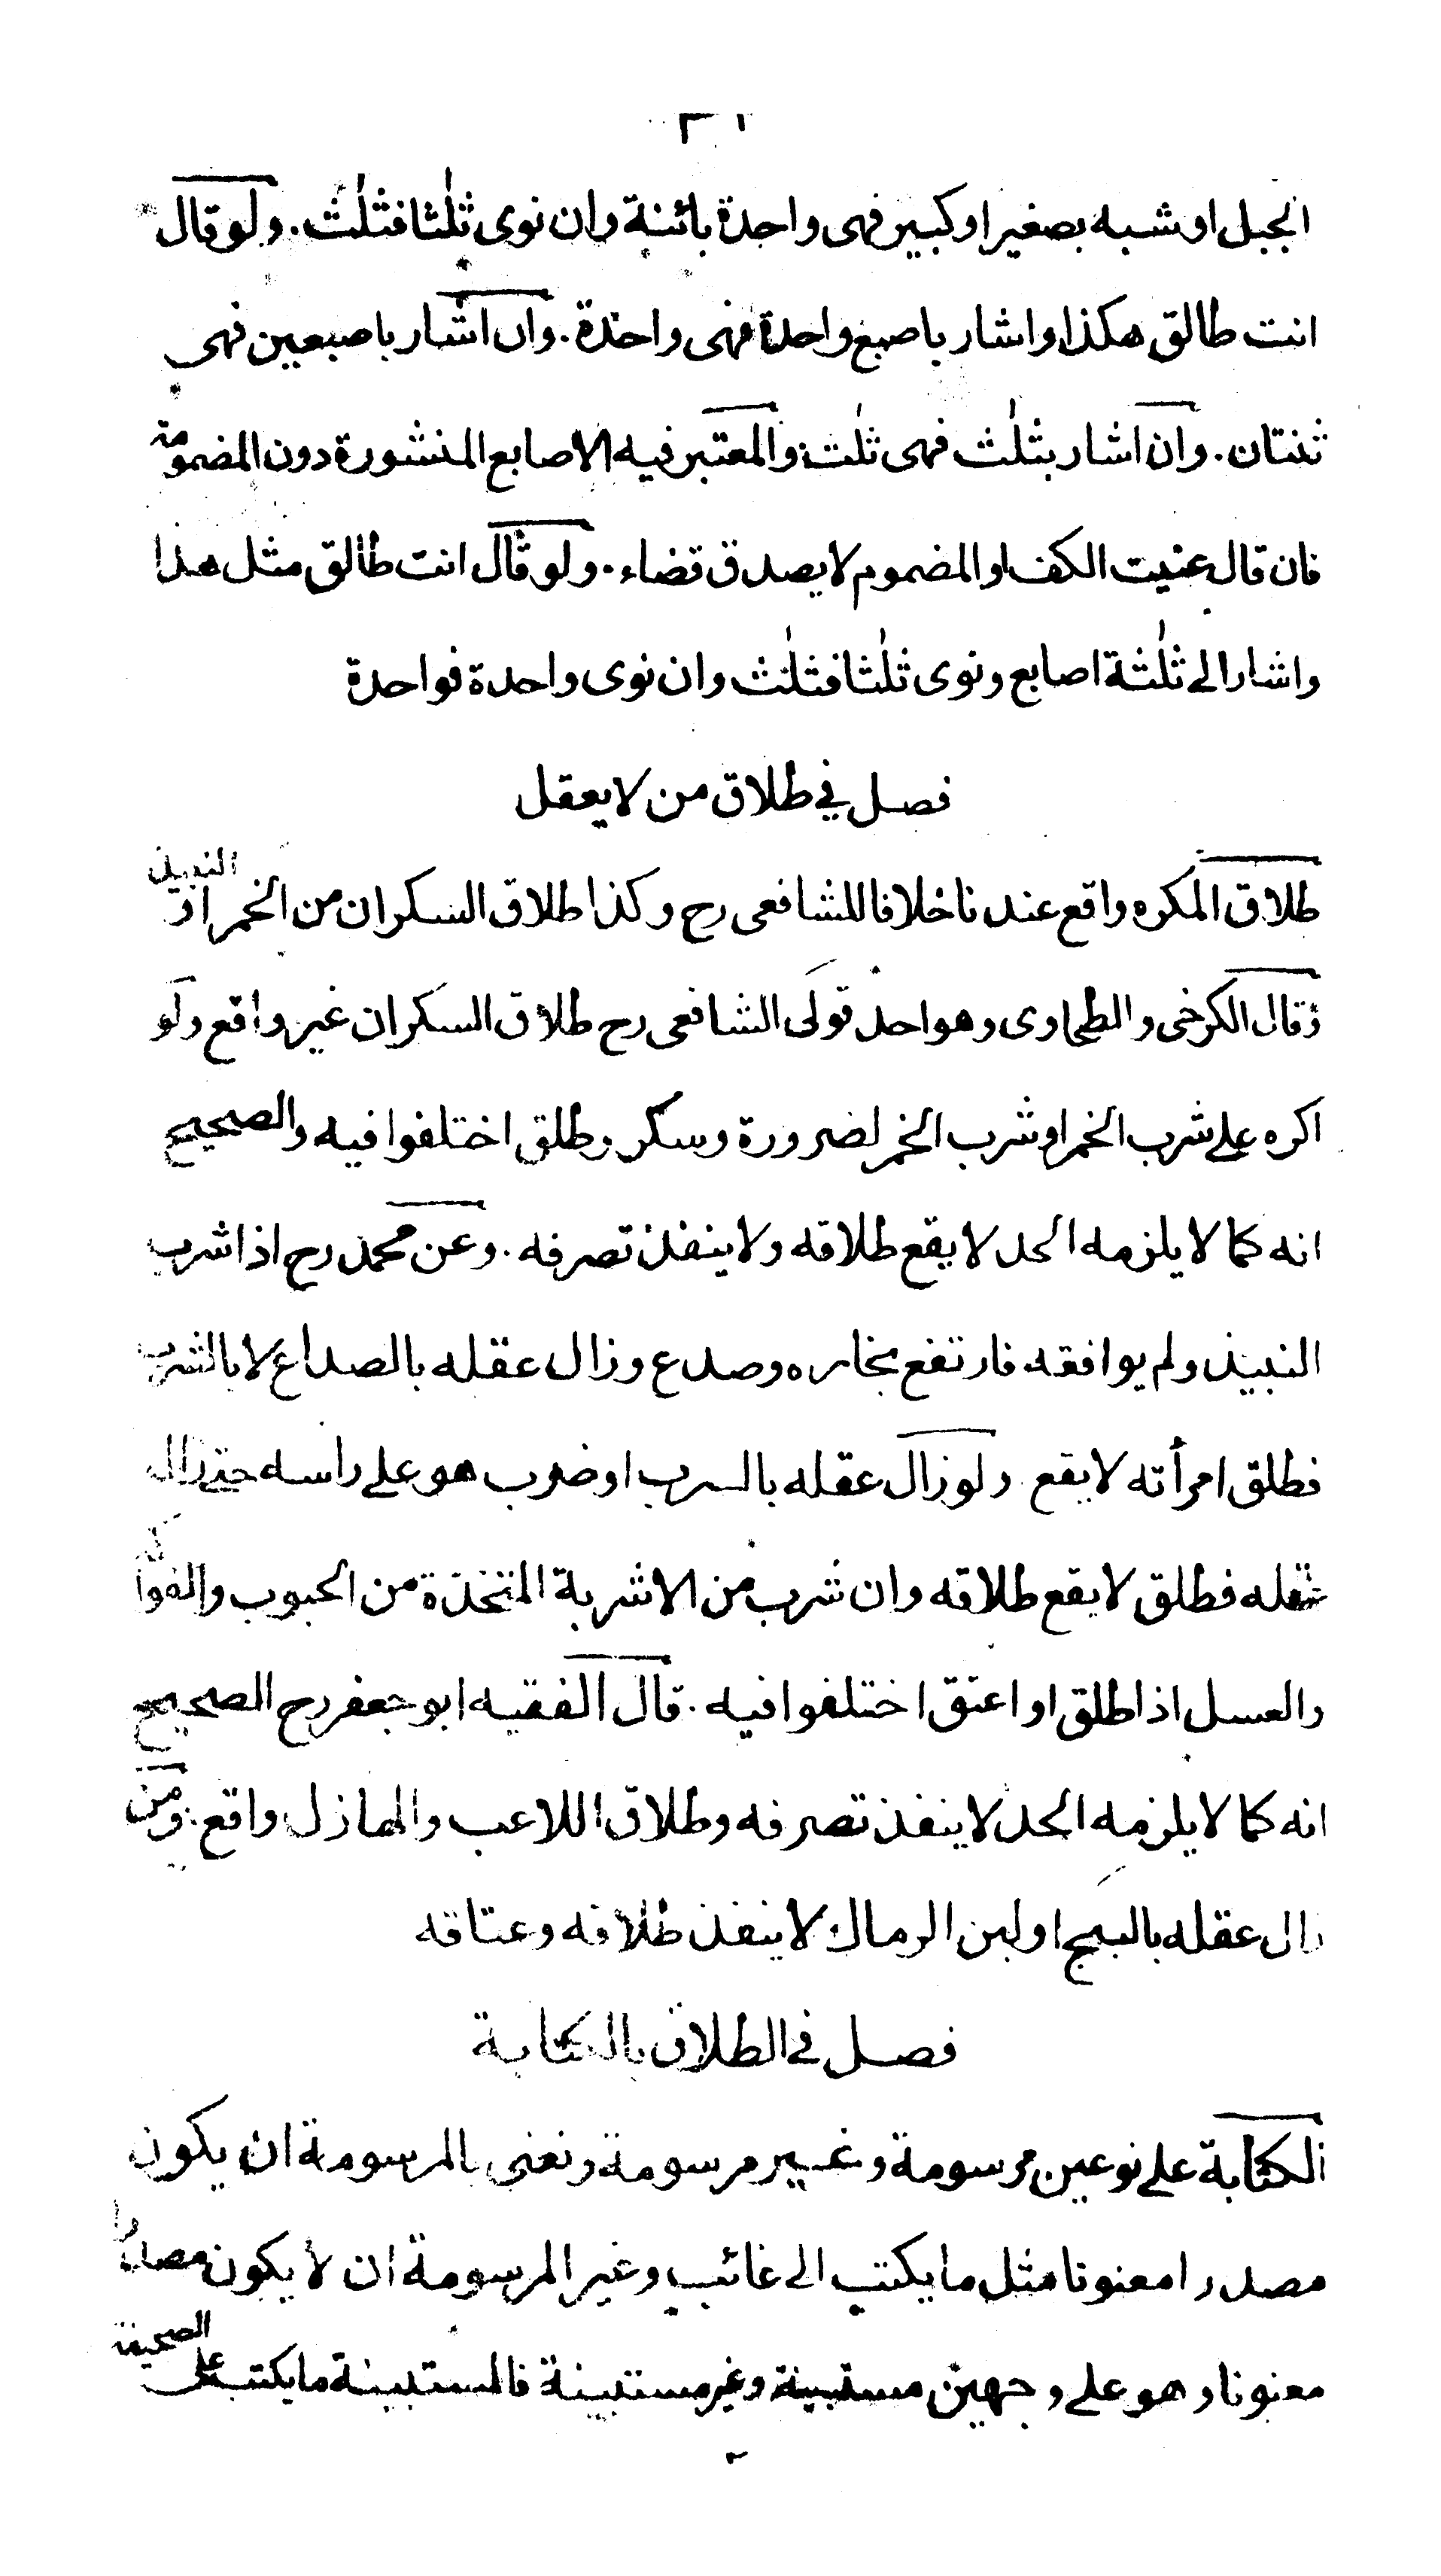 الجبل او شبه بصغير او كبير فهى واحدة بائنة وان نوى ثلٰثا فثلٰث. ولو قال
انت طالق هكذا واشار باصبع واحدة فهى واحدة. وان اشار باصبعين فهى
ثنتان. وان اشار بثلٰث فهى ثلٰث والمعتبر فيه الاصابع المنشورة دون المضمومة
فان قال عنيت الكف او المضموم لا يصدق قضاء. ولو قال انت طالق مثل هذا
واشار الى ثلٰثة اصابع ونوى ثلٰثا فثلٰث وان نوى واحدة فواحدة
فصل في طلاق من لا يعقل
طلاق المكره واقع عندنا خلافا للشافعى رح وكذا طلاق السكران من الخمر او النبيذ
وقال الكرخى والطحاوى وهو احد قولى الشافعى رح طلاق السكران غير واقع ولو
اكره على شرب الخمر او شرب الخمر لضرورة وسكر وطلق اختلفوا فيه والصحيح
انه كما لا يلزمه الحد لا يقع طلاقه ولا ينفذ تصرفه. وعن محمد رح اذا شرب
النبيذ ولم يوافقه فارتفع بخاره وصدع وزال عقله بالصداع لا بالشرب
فطلق امرأته لا يقع ولو زال عقله بالسرب او ضرب هو على راسه حتى زال
عقله فطلق لا يقع طلاقه وان شرب من الاشربة المتخذة من الحبوب والفواكه
والعسل اذا طلق او اعتق اختلفوا فيه. قال الفقيه ابو جعفر رح الصحيح
انه كما لا يلزمه الحد لا ينفذ تصرفه وطلاق اللاعب والهازل واقع. ومن
زال عقله بالبنج او لبن الرماك لا ينفذ طلاقه وعتاقه
فصل فى الطلاق بالكتابة
الكتابة على نوعين مرسومة وغير مرسومة ونعنى بالمرسومة ان يكون
مصدرا معنونا مثل ما يكتب الى غائب وغير المرسومة ان لا يكون مصدرا
معنونا وهو على وجهين مستبينة وغير مستبينة فالمستبينة ما يكتب على الصحيفة